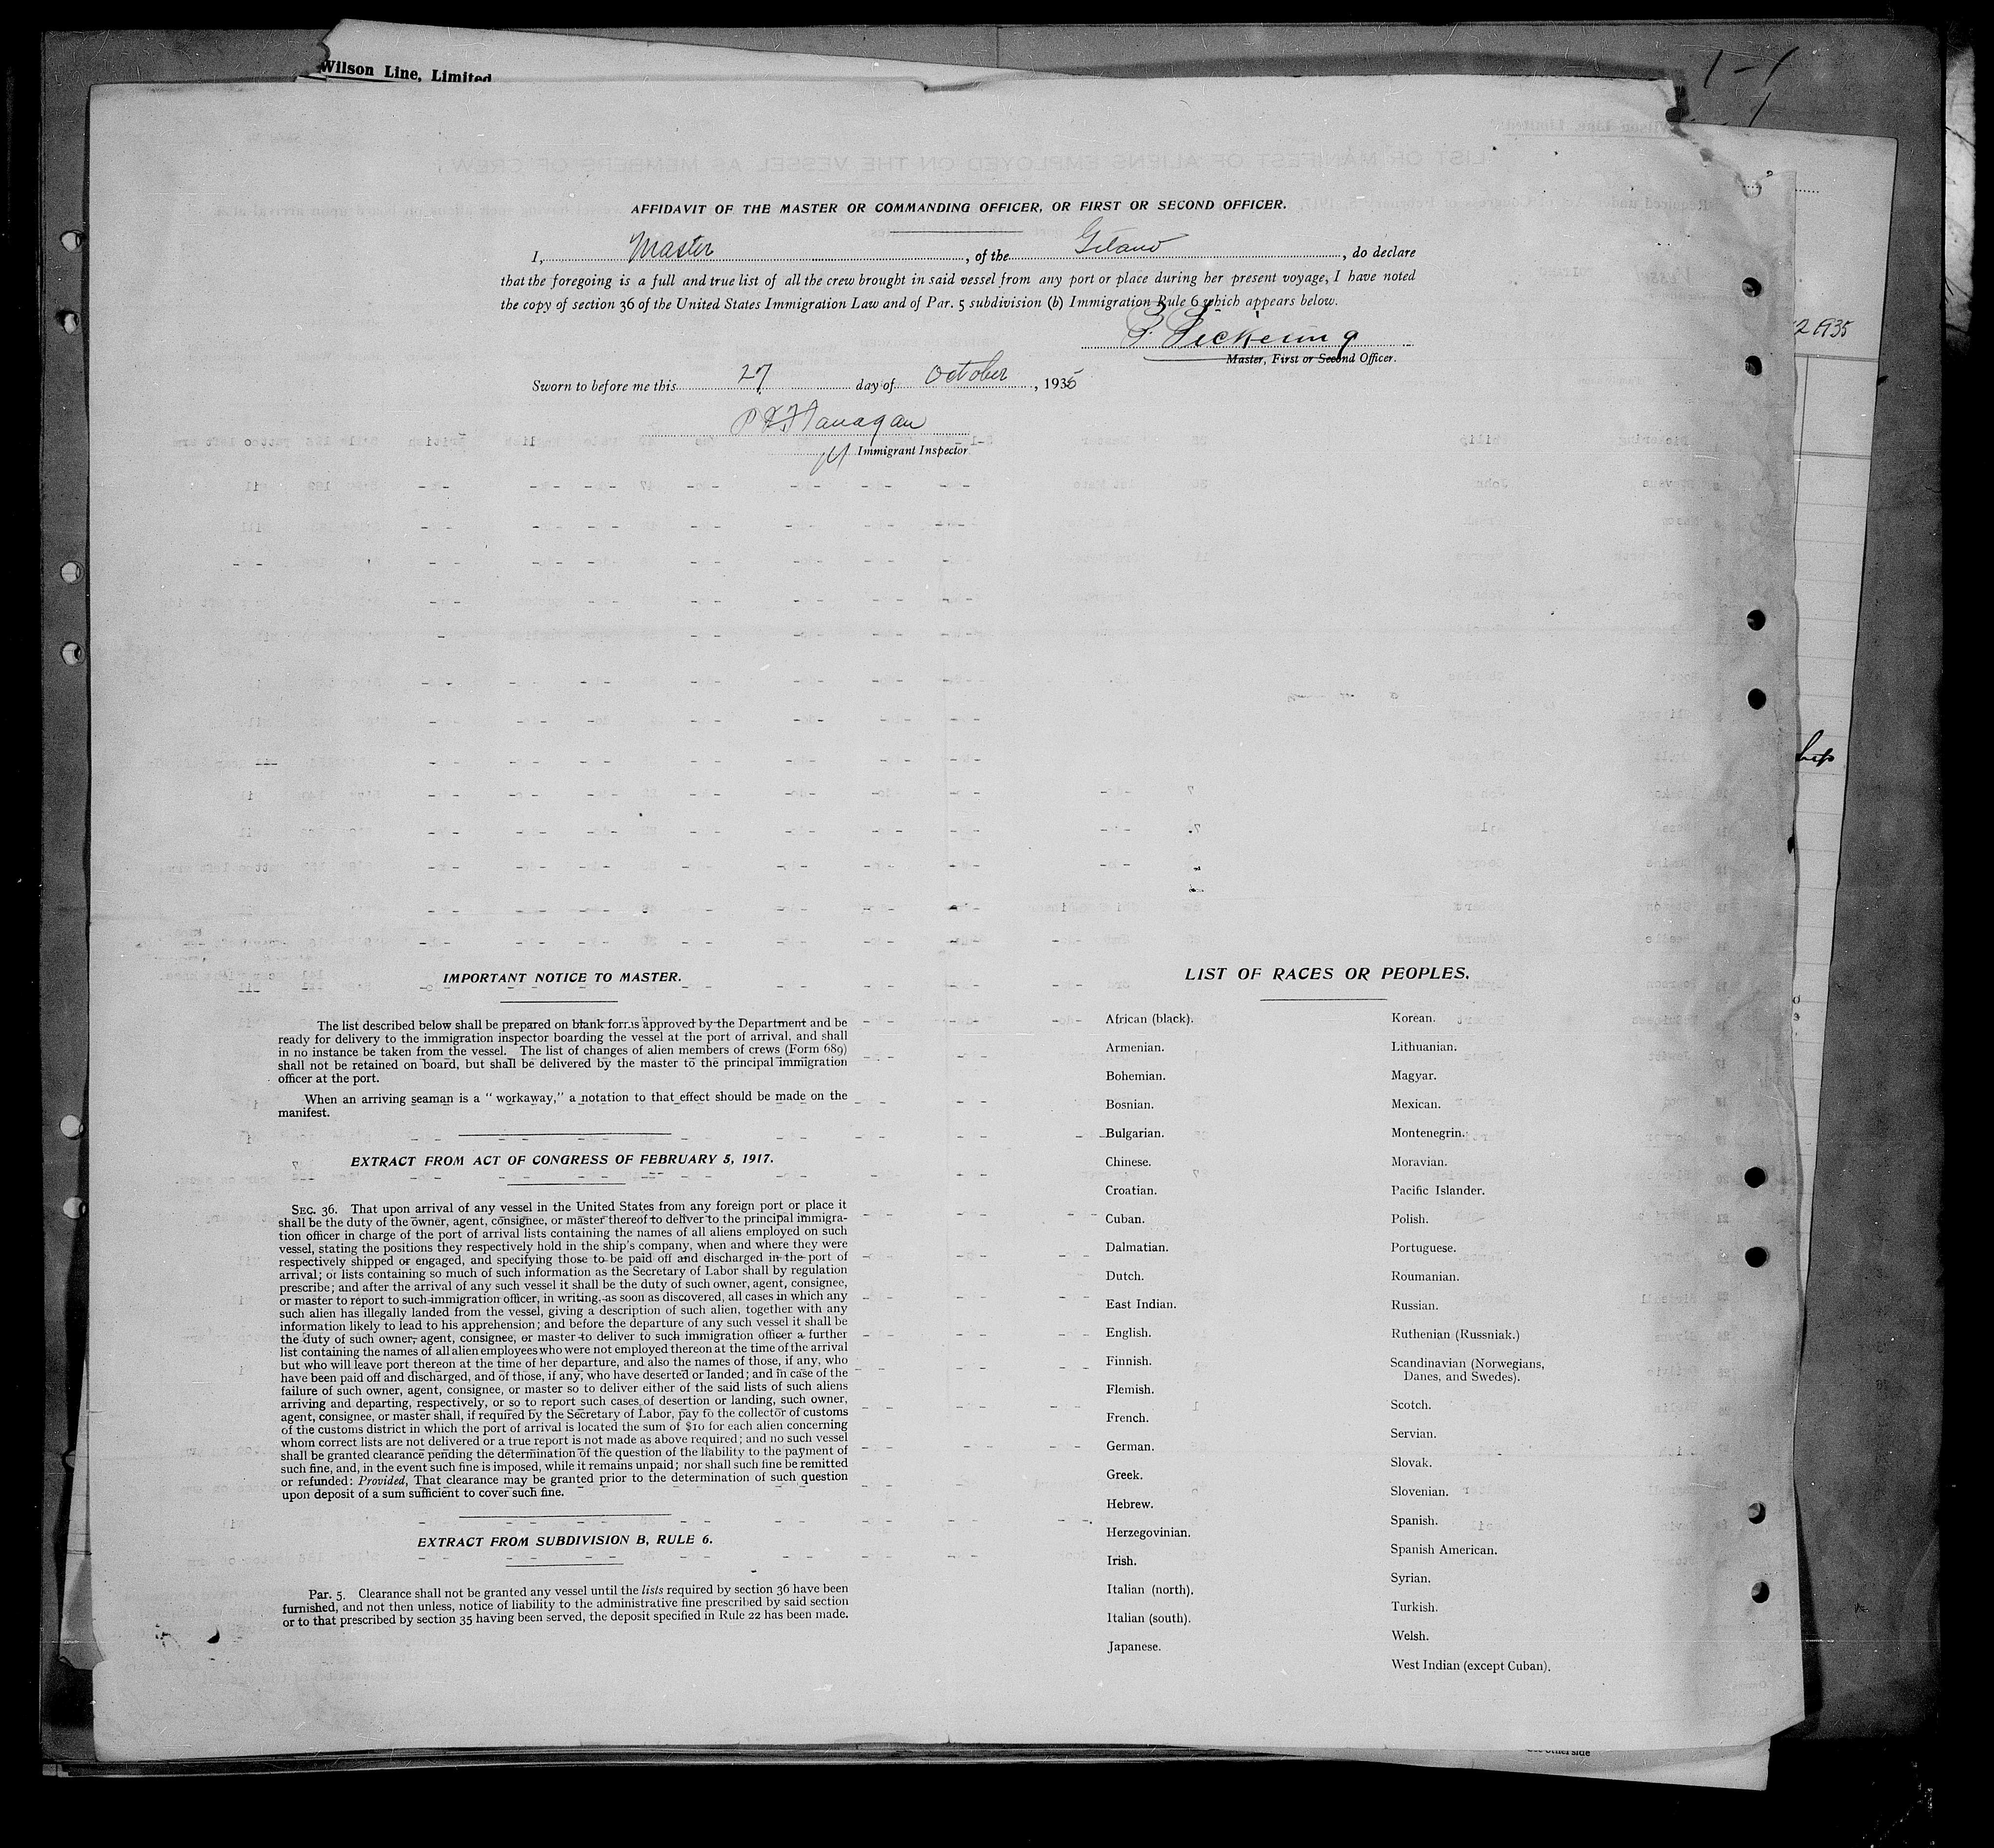 Wilson Line, Limited
1-1
AFFIDAVIT OF THE MASTER OR COMMANDING OFFICER, OR FIRST OR SECOND OFFICER.
I, Master, of the Gitano, do declare
that the foregoing is a full and true list of all the crew brought in said vessel from any port or place during her present voyage, I have noted
the copy of section 36 of the United States Immigration Law and of Par. 5 subdivision (b) Immigration Rule 6 which appears below.
P. Pickering
Master, First or Second Officer.
Sworn to before me this 27 day of October, 1935
Flanagan
Immigrant Inspector
2 1935
IMPORTANT NOTICE TO MASTER.
The list described below shall be prepared on blank forms approved by the Department and be
ready for delivery to the immigration inspector boarding the vessel at the port of arrival, and shall
in no instance be taken from the vessel. The list of changes of alien members of crews (Form 689)
shall not be retained on board, but shall be delivered by the master to the principal immigration
officer at the port.
When an arriving seaman is a " workaway," a notation to that effect should be made on the
manifest.
EXTRACT FROM ACT OF CONGRESS OF FEBRUARY 5, 1917.
SEC. 36. That upon arrival of any vessel in the United States from any foreign port or place it
shall be the duty of the owner, agent, consignee, or master thereof to deliver to the principal immigra-
tion officer in charge of the port of arrival lists containing the names of all aliens employed on such
vessel, stating the positions they respectively hold in the ship's company, when and where they were
respectively shipped or engaged, and specifying those to be paid off and discharged in the port of
arrival; or lists containing so much of such information as the Secretary of Labor shall by regulation
prescribe; and after the arrival of any such vessel it shall be the duty of such owner, agent, consignee,
or master to report to such immigration officer, in writing, as soon as discovered, all cases in which any
such alien has illegally landed from the vessel, giving a description of such alien, together with any
information likely to lead to his apprehension; and before the departure of any such vessel it shall be
the duty of such owner, agent, consignee, or master to deliver to such immigration officer a further
list containing the names of all alien employees who were not employed thereon at the time of the arrival
but who will leave port thereon at the time of her departure, and also the names of those, if any, who
have been paid off and discharged, and of those, if any, who have deserted or landed; and in case of the
failure of such owner, agent, consignee, or master so to deliver either of the said lists of such aliens
arriving and departing, respectively, or so to report such cases of desertion or landing, such owner,
agent, consignee, or master shall, if required by the Secretary of Labor, pay to the collector of customs
of the customs district in which the port of arrival is located the sum of $10 for each alien concerning
whom correct lists are not delivered or a true report is not made as above required; and no such vessel
shall be granted clearance pending the determination of the question of the liability to the payment of
such fine, and, in the event such fine is imposed, while it remains unpaid; nor shall such fine be remitted
or refunded: Provided, That clearance may be granted prior to the determination of such question
upon deposit of a sum sufficient to cover such fine.
EXTRACT FROM SUBDIVISION B, RULE 6.
Par. 5. Clearance shall not be granted any vessel until the lists required by section 36 have been
furnished, and not then unless, notice of liability to the administrative fine prescribed by said section
or to that prescribed by section 35 having been served, the deposit specified in Rule 22 has been made.
LIST OF RACES OR PEOPLES.
African (black).
Armenian.
Bohemian.
Bosnian.
Bulgarian.
Chinese.
Croatian.
Cuban.
Dalmatian.
Dutch.
East Indian.
English.
Finnish.
Flemish.
French.
German.
Greek.
Hebrew.
Herzegovinian.
Irish.
Italian (north).
Italian (south).
Japanese.
Korean.
Lithuanian.
Magyar.
Mexican.
Montenegrin.
Moravian.
Pacific Islander.
Polish.
Portuguese.
Roumanian.
Russian.
Ruthenian (Russniak.)
Scandinavian (Norwegians,
Danes, and Swedes).
Scotch.
Servian.
Slovak.
Slovenian.
Spanish.
Spanish American.
Syrian.
Turkish.
Welsh.
West Indian (except Cuban).